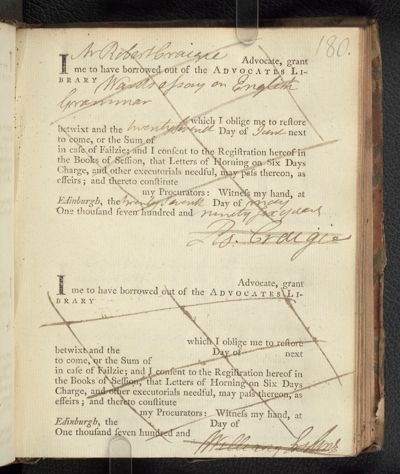 180.
I Mr Robert Craigie Advocate, grant
me to have borrowed out of the ADVOCATES LI-
BRARY Wards essay on English
Grammar
which I oblige me to restore
betwixt and the twenty seventh Day of June next
to come, or the Sum of
in case of Failzie; and I consent to the Registration hereof in
the Books of Session, that Letters of Horning on Six Days
Charge, and other executorials needful, may pass thereon, as
effeirs; and thereto constitute
my Procurators: Witness my hand, at
Edinburgh, the twenty seventh Day of may
One thousand seven hundred and ninety six years
Ro. Craigie
I Advocate, grant
me to have borrowed out of the ADVOCATES LI-
BRARY
which I oblige me to restore
betwixt and the Day of next
to come, or the Sum of
in case of Failzie; and I consent to the Registration hereof in
the Books of Session, that Letters of Horning on Six Days
Charge, and other executorials needful, may pass thereon, as
effeirs; and thereto constitute
my Procurators: Witness my hand, at
Edinburgh, the Day of
One thousand seven hundred and
William